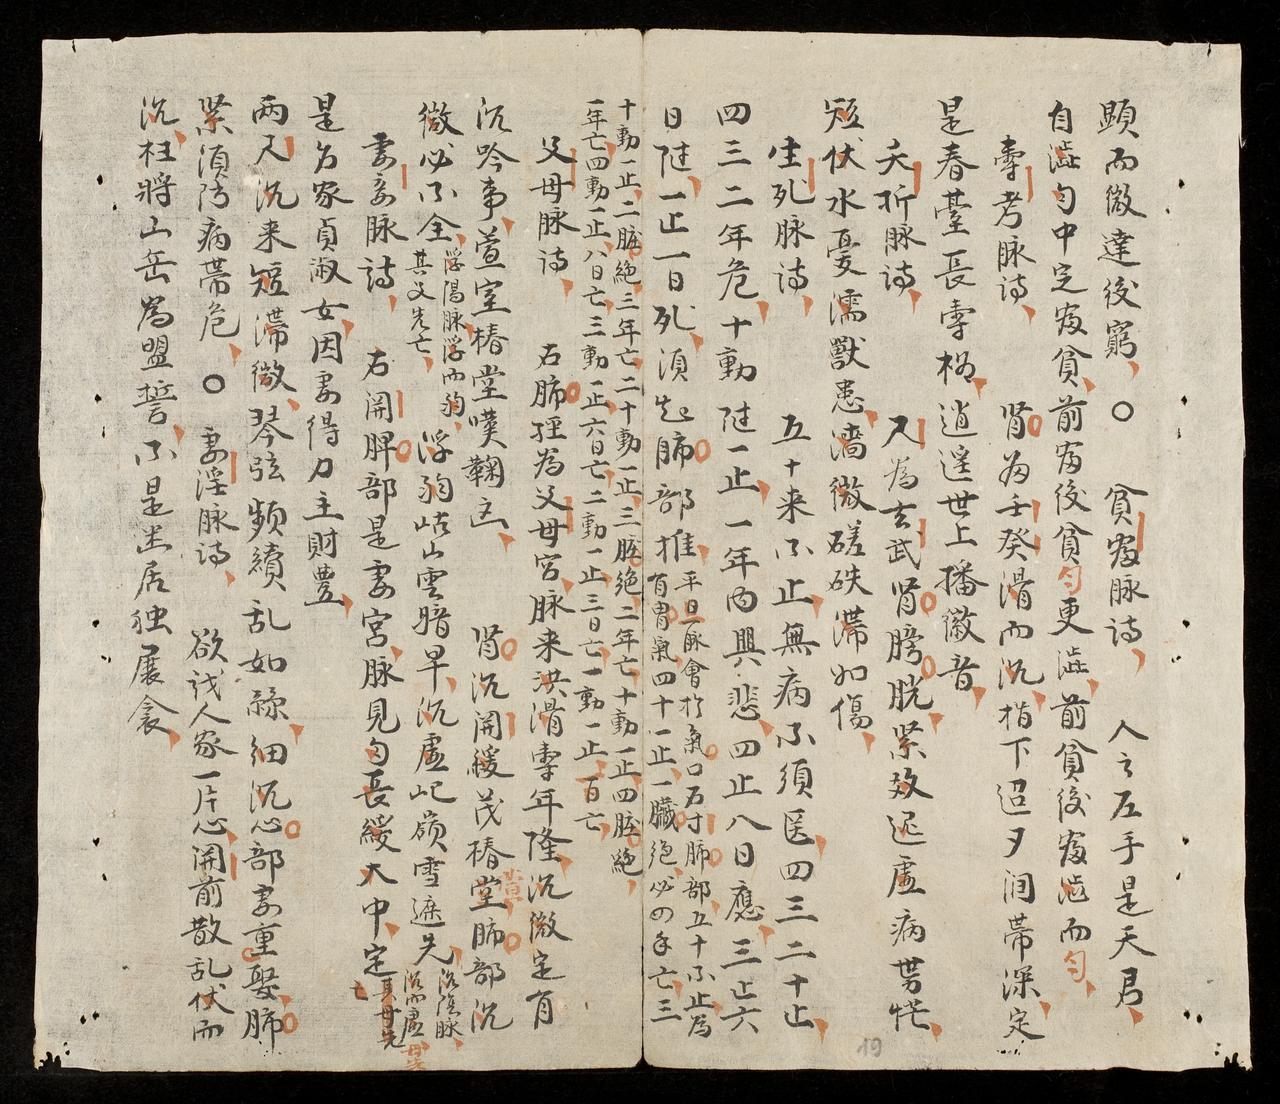 顕而微達後窮○貧富脉诗人之左手是天君
自澁匀中定富貧前富後貧匀更澁前貧後富澁而匀
壽考脉诗腎为壬癸滑而沉指下迢夕润帶深定
是春臺長壽格逍遥世上播徽音
夭折脉诗尺為玄武腎膀胱紧效迟虚病势忙
短伏水憂濡獸患濇微磋砆滞如傷
生死脉诗五十来不止無病不须医四三二十止
四三二年危十動陡一止一年内興悲四止八日應三止六
日陡一止一日死須起肺部推平旦脉會扵氣口右寸肺部五十不止為
有胃氣四十一止一臓絶必四年亡三
十動一止二臓絶三年亡二十動一止三臓絶二年亡十動一止四臓絶
一年亡四動一止八日亡三動一止六日亡二動一止三日亡一動一止一百亡
父母脉诗右肺経為父母宮脉来洪滑壽年隆沉微定有
沉吟事萱室椿堂嘆鞠凶腎沉関緩茂椿堂肺部沉
微必不全浮陽脉浮而芤
其父先亡浮芤岵山雲暗早沉虚屺嶺雪遮先沉陰脉
沉而虚母先
其母先
亡
妻妾脉诗右関脾部是妻宮脉見匀長緩大中定
是为家貞淑女因妻得力主財豊
两尺沉来短滞微琴弦頻續乱如絲細沉心部妻重娶肺
紧須防病带危○妻淫脉诗欲识人家一片心関前散乱伏而
沉枉將山岳為盟誓不是迷居独展衾
19